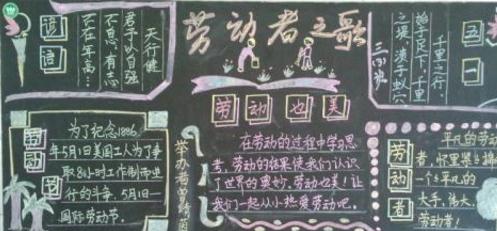 劳动者之歌
谚语
天行健
君子以自强
不息,有志
不在年高…
五一
千里之行,
始于足下,千里
之堤,溃于蚁穴
三(3)班
劳动节
为了纪念1886
年5月1日美国工人为了争
取8小时工作制而举
行的斗争,5月1日
国际劳动节。
劳动也美
在劳动的过程中学习思
考,劳动的结果使我们认识
了世界的奥妙,劳动也美!让
我们一起从小热爱劳动吧。
劳动者
平凡的劳动
者,怀里装
一个个平凡的
大手,伟大
劳动者!